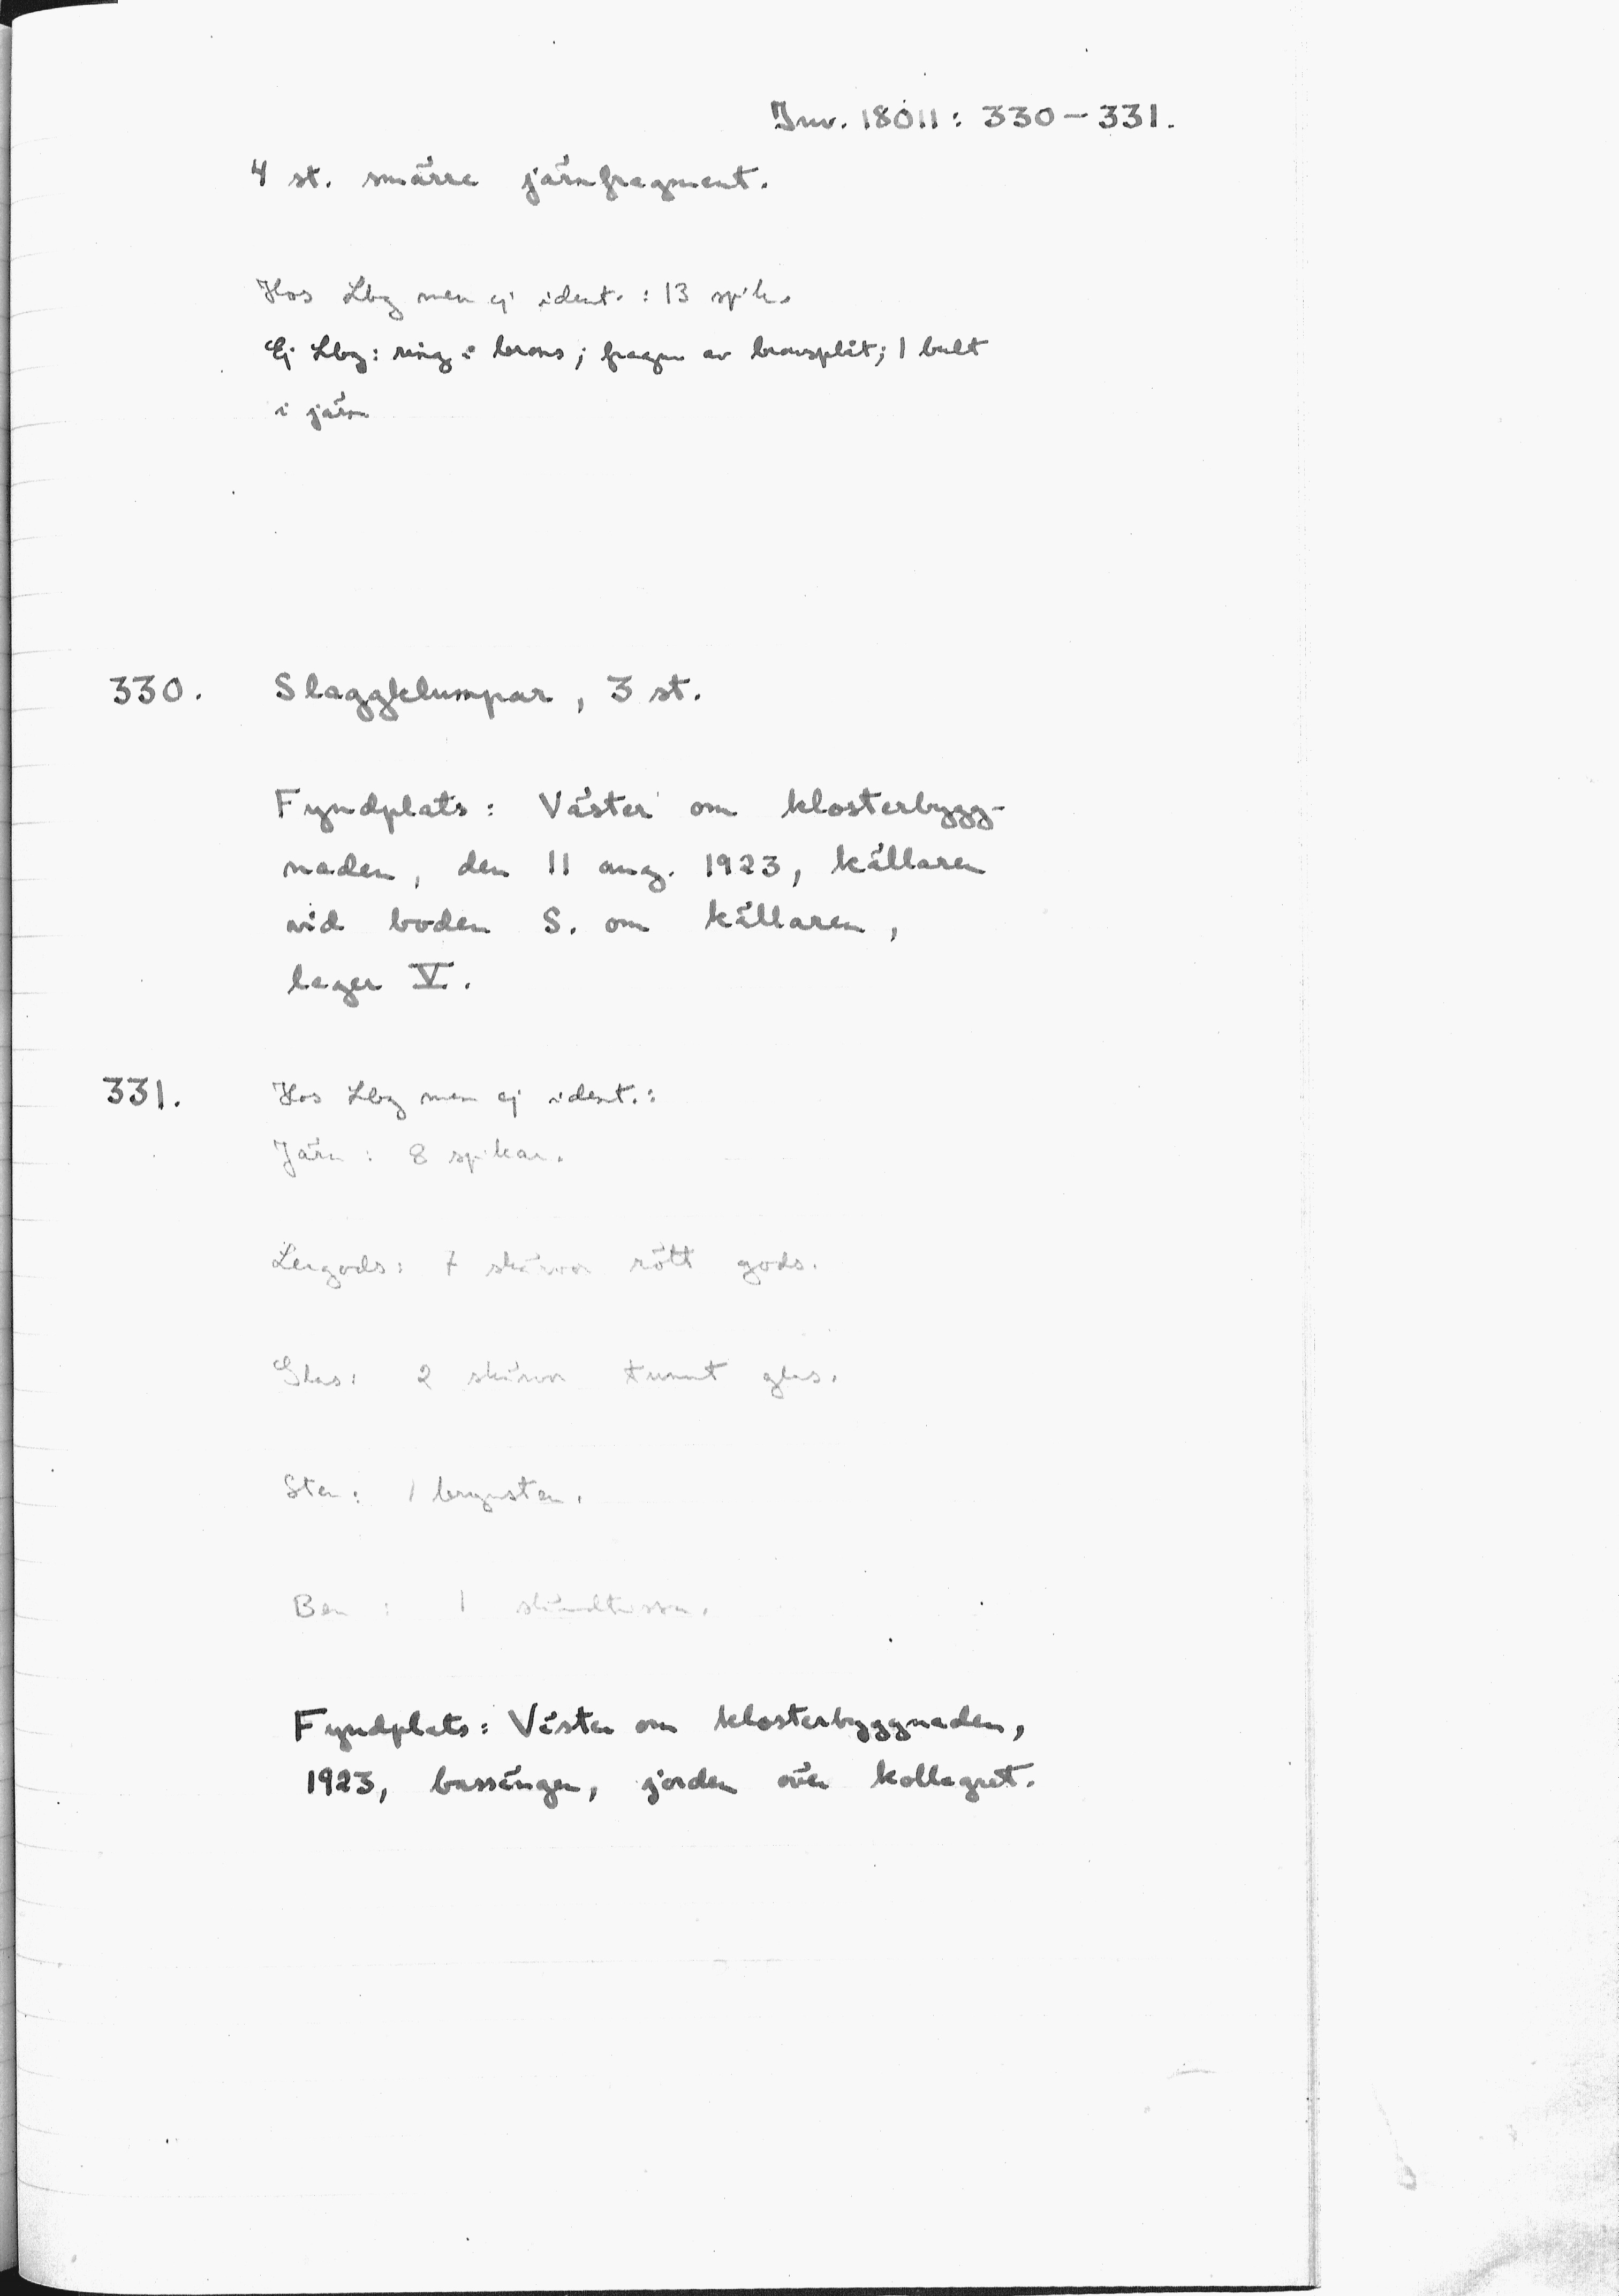 Inv. 18011: 330-331.
4 st. smärre järnfragment.
Hos Lbg men ej ident.: 13 spik.
Ej Lbg: ring i brons; fragm av bronsplåt; 1 bult
i järn
330. Slaggklumpar, 3 st.
Fyndplats: Väster om klosterbygg-
naden, den 11 aug. 1923, källaren
vid boden S. om källaren,
lager V.
331. Hos Lbg men ej ident.:
Järn: 8 spikar.
Lergods: 7 skärvor rött gods.
Glas: 2 skärvor tunnt glas.
Sten: 1 brynsten.
Ben: 1
Fyndplats: Väster om klosterbyggnaden,
1923, bassängen, jorden över kollagret.